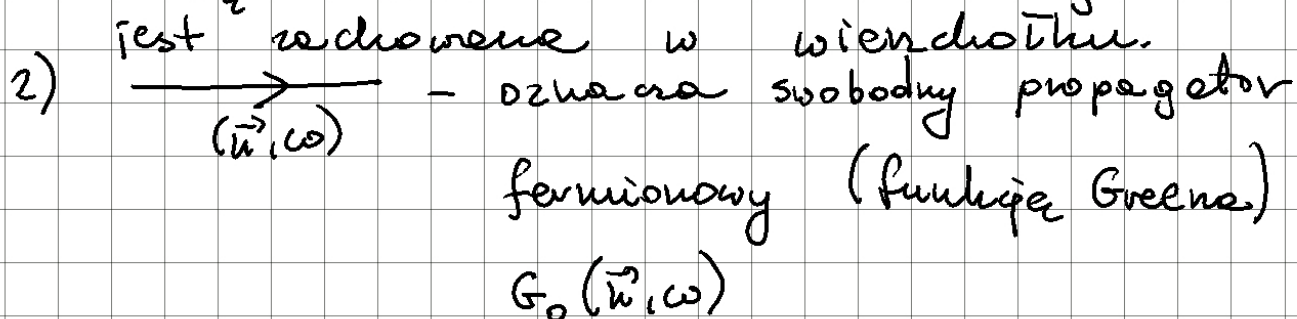 jest zachowana w wierzchołku.
2) ⟶ - oznacza swobodny propagator
(k⃗, ω)
fermionowy (funkcję Greena)
G₀(k⃗, ω)